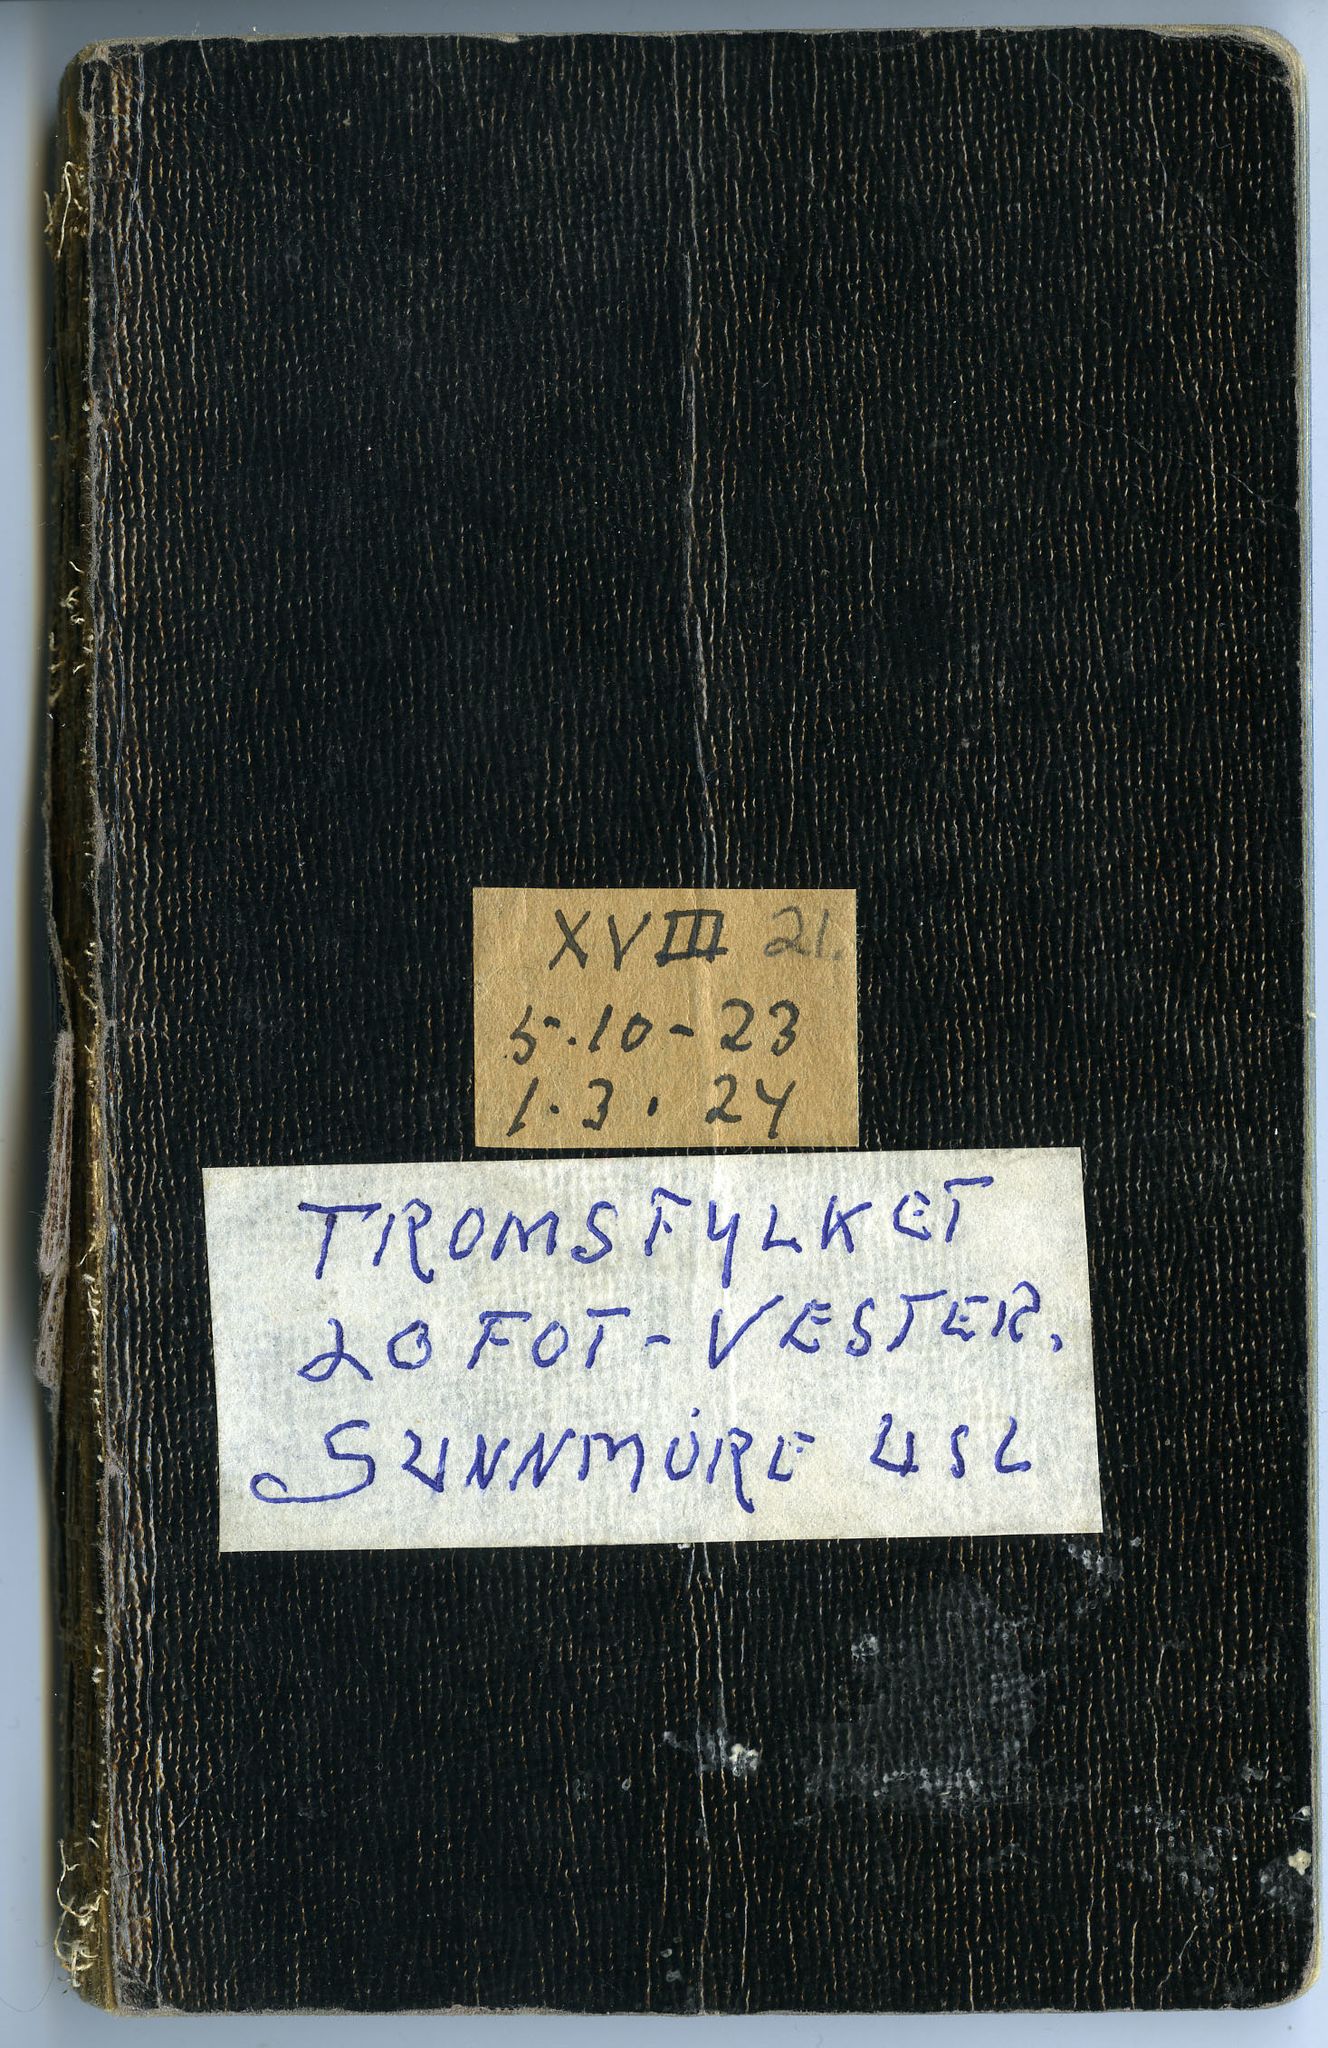 XVIII 21.
5.10-23
1.3.24
TROMSFYLKET
LOFOT-VESTER.
SUNNMÖRE USL